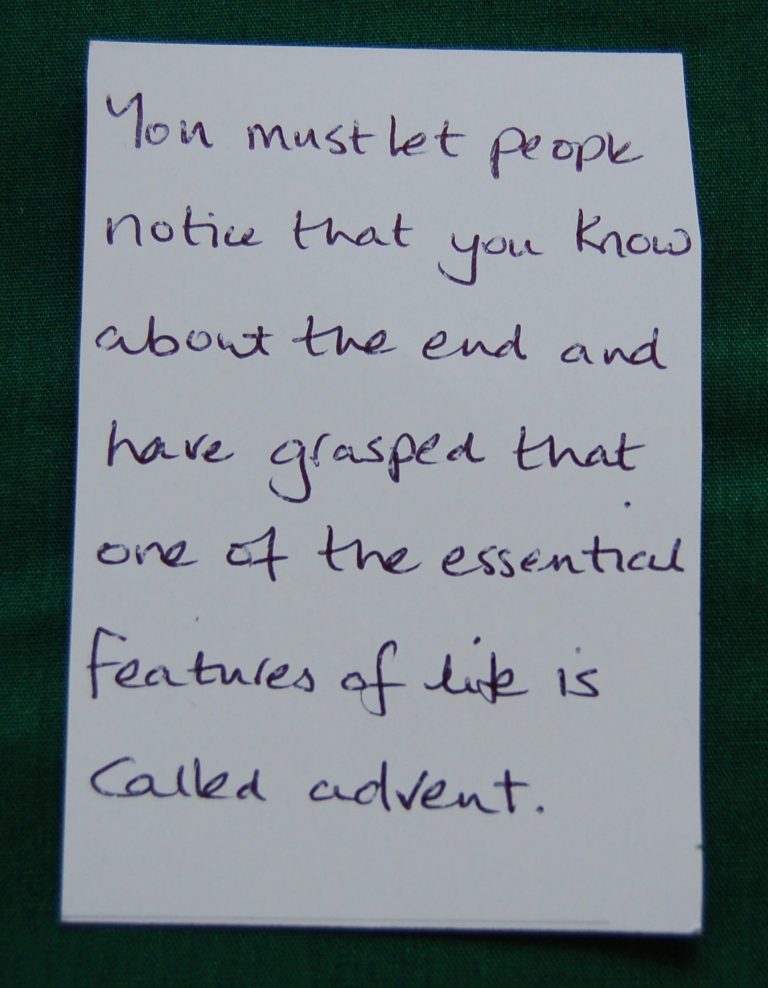 You must let people
notice that you know
about the end and
have grasped that
one of the essential
features of life is
called advent.